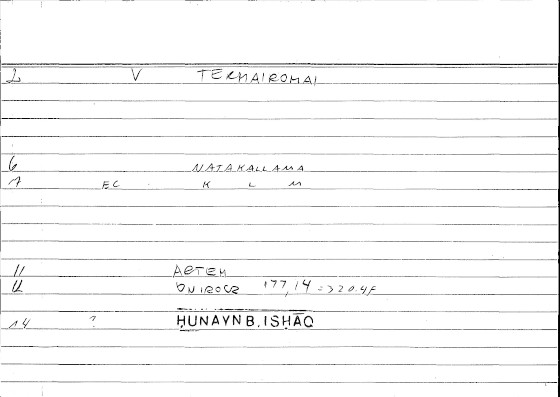 2 V TEKMAIROMAI
6 NATAKALLAMA
7 EC K L M
11 ARTEM
12 ONIROCR 177,14 => 20.4F
14 ? ḤUNAYN B. ISḤĀQ